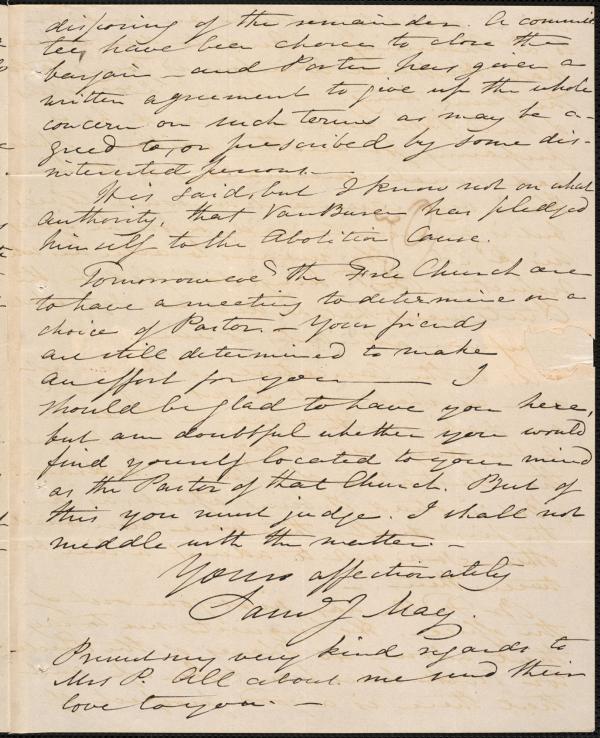 disposing of the remainder. A commit-
tee have been chosen to close the
bargain – and Porter has given a
written agreement to give up the whole
concern on such terms as may be a-
greed to, or prescribed by some dis-
interested persons. –
It is said, but I know not on what
authority, that Van Buren has pledged
himself to the Abolition Cause.
Tomorrow eve^g the Free Church are
to have a meeting to determine on a
choice of Pastor. – Your friends
are still determined to make
an effort for you —— I
should be glad to have you here,
but am doubtful whether you would
find yourself located to your mind
as the Pastor of that Church. But of
this you must judge. I shall not
meddle with the matter. –
Yours affectionately
Saml J May.
Present my very kind regards to
Mrs P. All about me send their
love to you. –